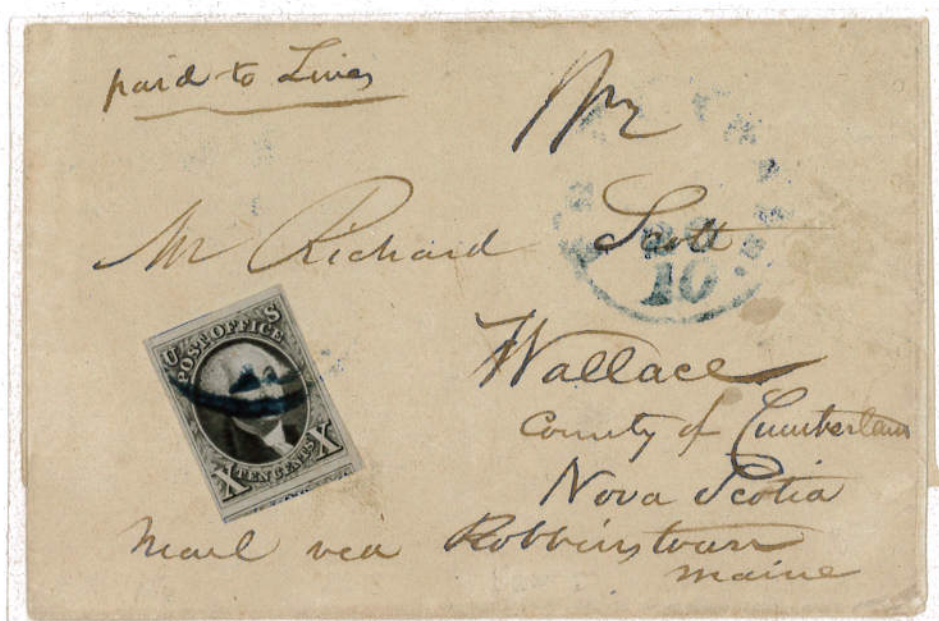 paid to Lines
Mr Richard Scott
30
10
U S
POST OFFICE
X TEN CENTS X
Wallace
County of Cumberland
Nova Scotia
Mail via Robbinstown
Maine